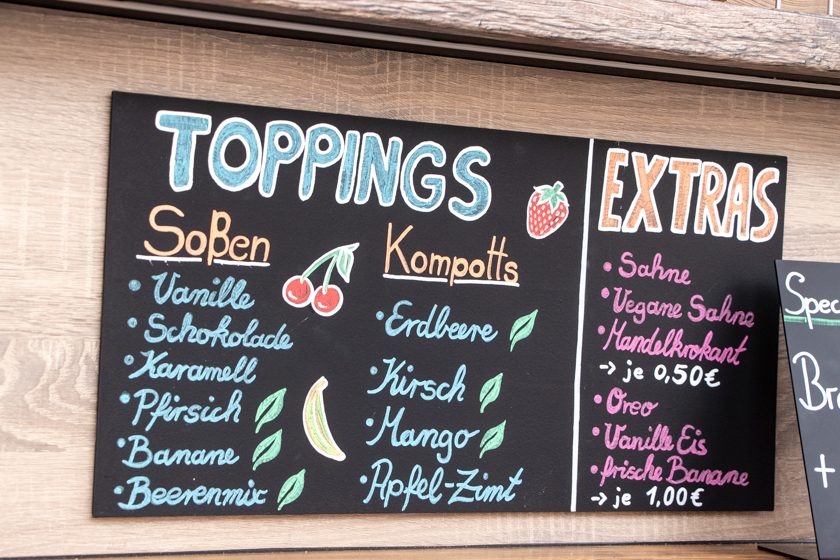 TOPPINGS
Soßen
• Vanille
• Schokolade
• Karamell
• Pfirsich
• Banane
• Beerenmix
Kompotts
• Erdbeere
• Kirsch
• Mango
• Apfel-Zimt
EXTRAS
• Sahne
• Vegane Sahne
• Mandelkrokant
→ je 0,50€
• Oreo
• Vanille Eis
• frische Banane
→ je 1,00€
+